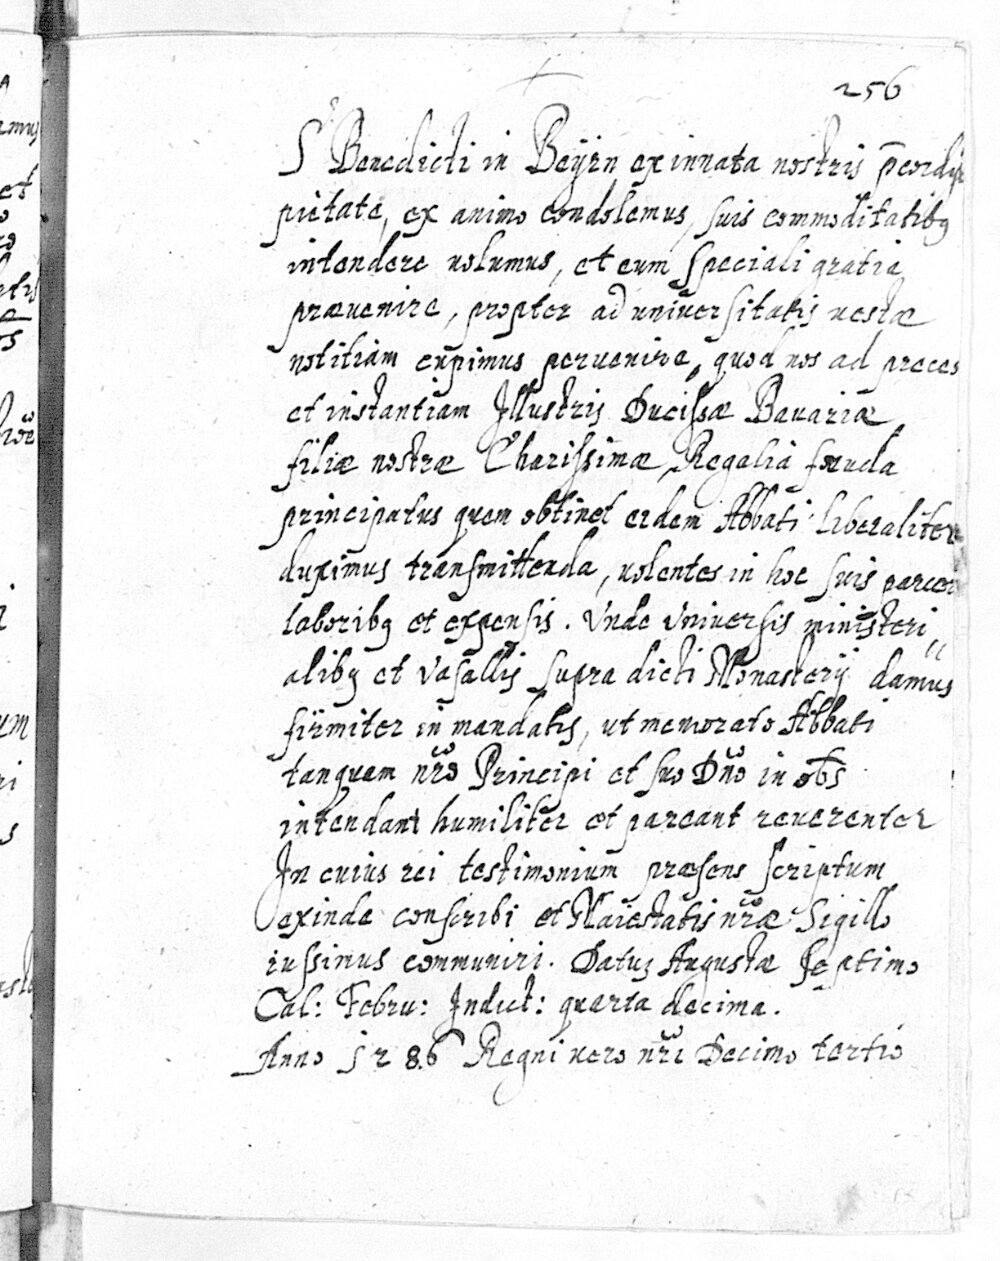 256
S Benedicti in Beÿrn ex innata nostris p̄cordijs
pietate, ex animo condolemus, suis commoditatibꝫ
intendere uolumus, et eum speciali gratia
præuenire, propter ad uniuersitatis uestræ
notitiam cupimus peruenire, quod nos ad preces
et instantiam Illustris Ducissæ Bauariæ
filiæ nostræ Charissimæ, Regalia feuda
principatus quem obtinet eidem Abbati liberaliter
duximus transmittenda, uolentes in hoc suis parcere
laboribꝫ et expensis. Unde Vniuersis ministeri„
alibꝫ et Vasallis supra dicti Monasterij damus
firmiter in mandatis, ut memorato Abbati
tanquam nr̃o Principi et suo Dño in oĩbs
intendant humiliter et pareant reuerenter
In cuius rei testimonium præsens scriptum
exinde conscribi et Maiestatis nr̃æ Sigillo
iussimus communiri. Datus Augustæ septimo
Cal: Febru: Indict: quarta decima.
Anno 1286 Regni uero nr̃i Decimo tertio